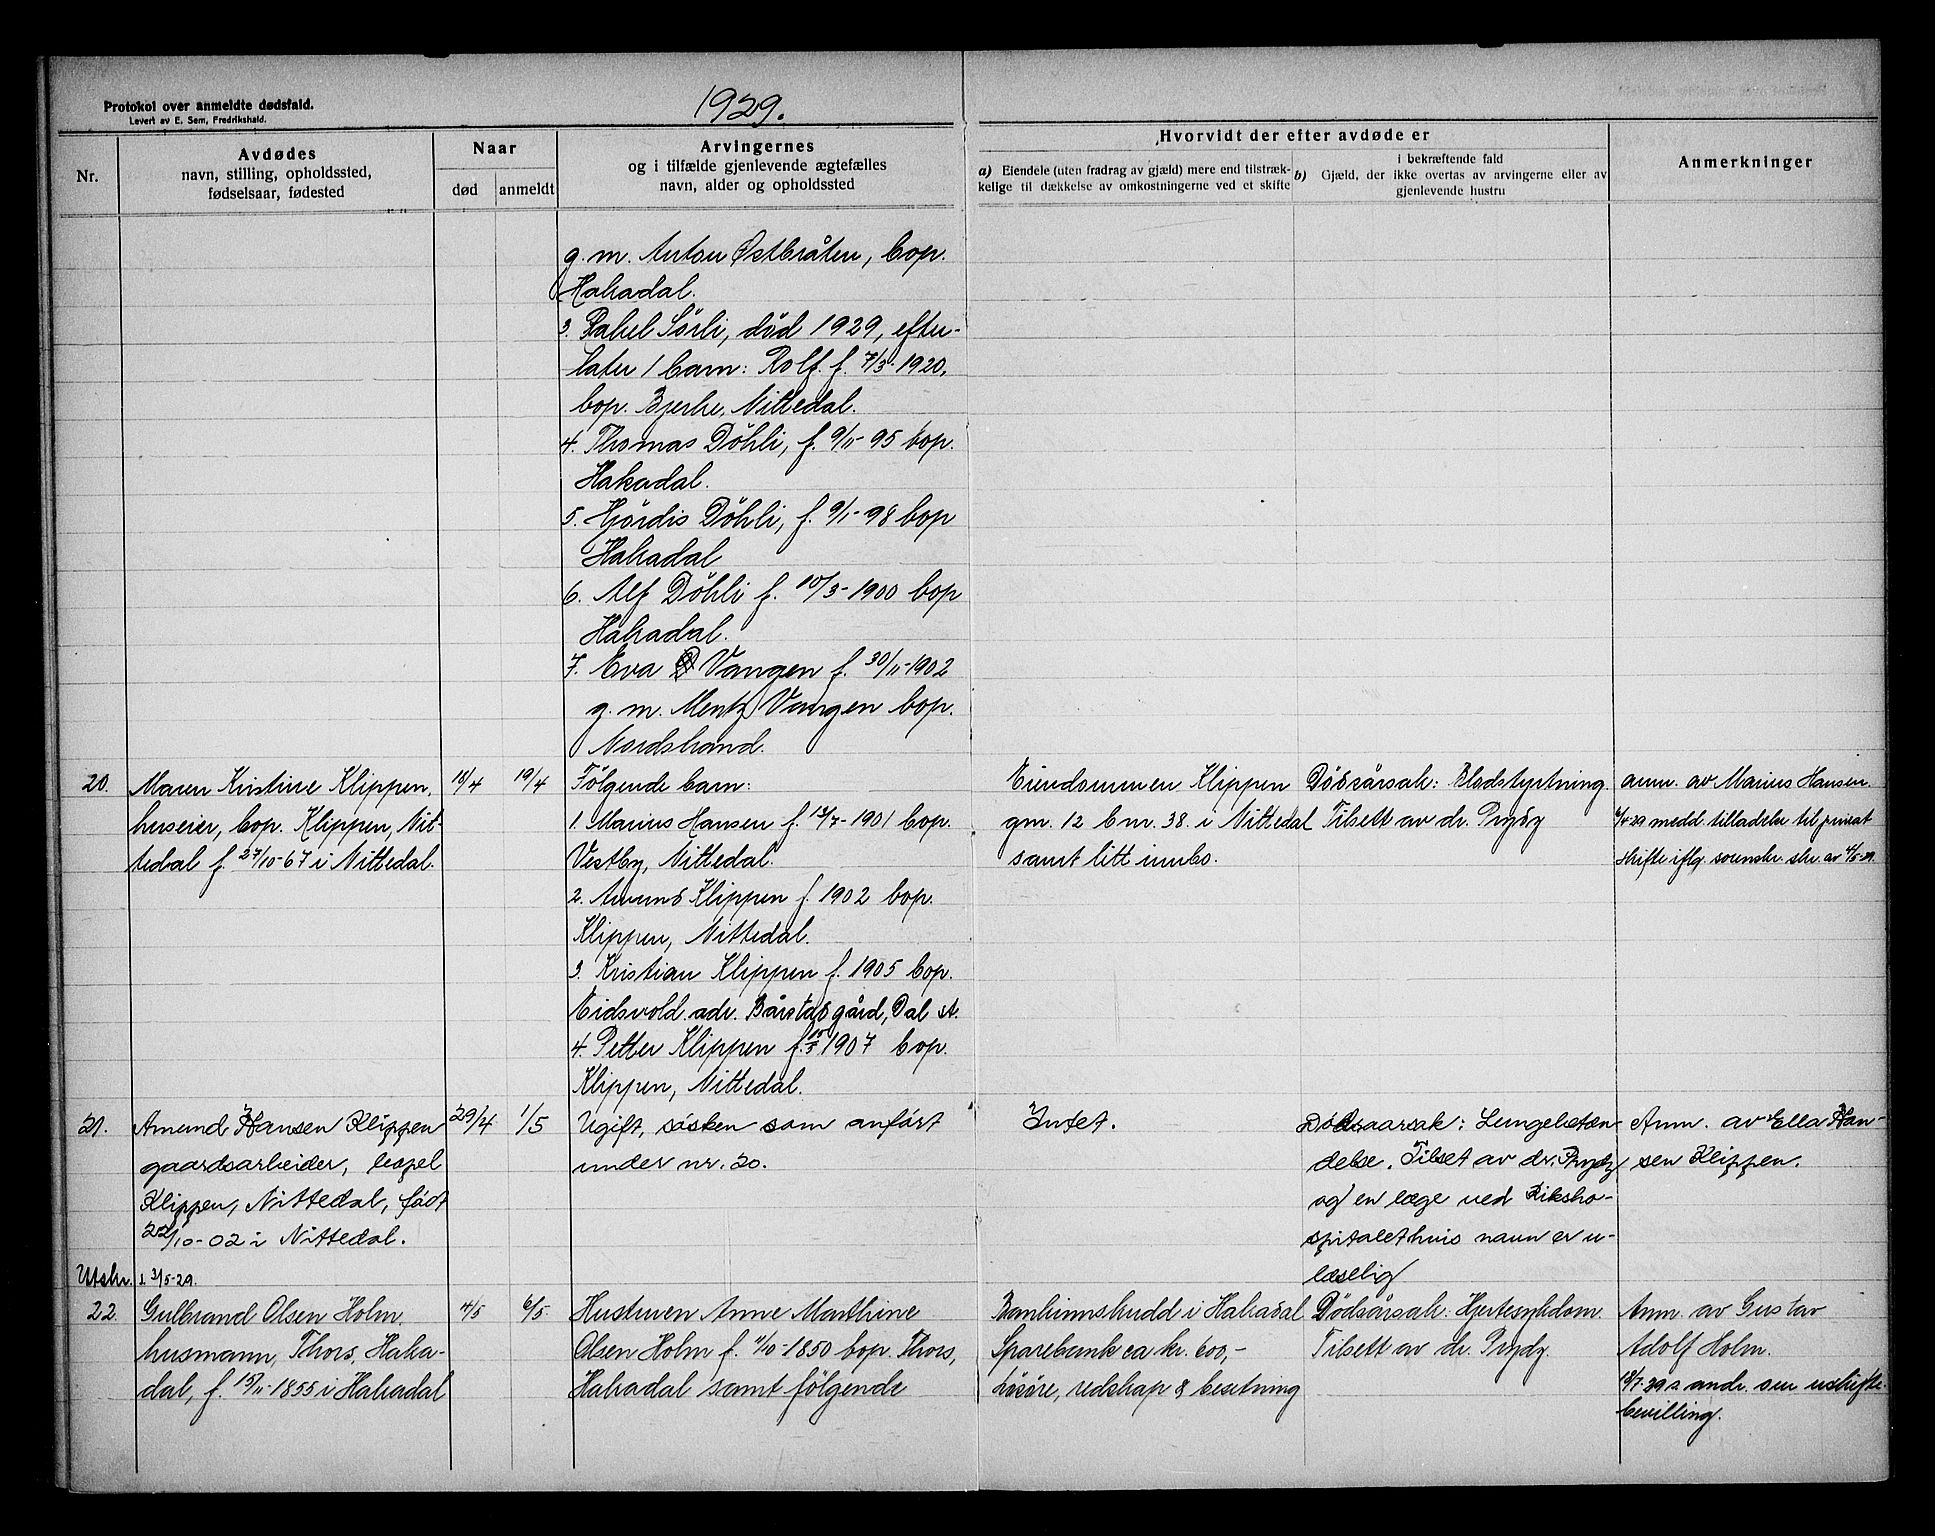 Protokol over anmeldte dødsfald.
Levert av E. Sem, Fredrikshald.
1929.
Nr.
Avdødes
navn, stilling, opholdssted,
fødselsaar, fødested
Naar
død
anmeldt
Arvingernes
og i tilfælde gjenlevende ægtefælles
navn, alder og opholdssted
Hvorvidt der efter avdøde er
a) Eiendele (uten fradrag av gjæld) mere end tilstræk-
kelige til dækkelse av omkostningerne ved et skifte
i bekræftende fald
b) Gjæld, der ikke overtas av arvingerne eller av
gjenlevende hustru
Anmerkninger
g. m. Anton Østbråten, bop.
Hakadal.
3. Rakel Sörli, död 1929, efter-
later 1 barn: Rolf. f. 7/3-1920,
bop. Bjerke, Nittedal.
4. Thomas Döhli, f. 9/11-95 bop.
Hakadal.
5. Hjördis Döhli, f. 9/1-98 bop
Hakadal
6. Alf Döhli f. 10/3-1900 bop
Hakadal.
7. Eva Vangen f. 30/11-1902
g. m. Mentz Vangen bop.
Nordstrand.
20.
Maren Kristine Klippen,
huseier, bop. Klippen, Nit-
tedal f. 27/10-67 i Nittedal.
18/4
19/4
Følgende barn:
1. Marius Hansen f. 13/7-1901 bop.
Vestby, Nittedal.
2. Amund Klippen f. 1902 bop.
Klippen, Nittedal.
3. Kristian Klippen f. 1905 bop.
Eidsvold. adr. Bårstad gård, Dal st.
4. Petter Klippen f. 1907 bop.
Klippen, Nittedal.
Eiendommen Klippen
gm. 12 bnr. 38. i Nittedal
samt litt innbo.
Dödsårsak: Blodstyrtning.
Tilsett av dr. Prydz
anm. av Marius Hansen.
medd. tilladelse til privat
skifte iflg. sorenskr. skr. av 4/5-29.
21.
Amund Hansen Klippen
gaardsarbeider, bopel
Klippen, Nittedal, født
22/10-02 i Nittedal.
29/4
1/5
Ugift, søsken som anført
under nr. 20.
Intet.
Dødsaarsak: Lungebetæn-
delse. Tilset av dr. Prydz
og en læge ved Riksho-
spitalet hvis navn er u-
læselig
Anm. av Ella Han-
sen Klippen.
Utskr. s. 3/5-29.
22.
Gulbrand Olsen Holm,
husmann, Thors, Haka-
dal, f. 15/11-1855 i Hakadal
4/5
6/5
Hustruen Anne Marthine
Olsen Holm f. 11/10-1850 bop. Thors,
Hakadal samt følgende
Bankinnskudd i Hakadal
Sparebank ca kr. 600,-
Løsøre, redskap & besetning
Dödsårsak: Hjertesykdom.
Tilsett av dr. Prydz.
Anm. av Gustav
Adolf Holm.
andr. sen uskifte-
bevilling.